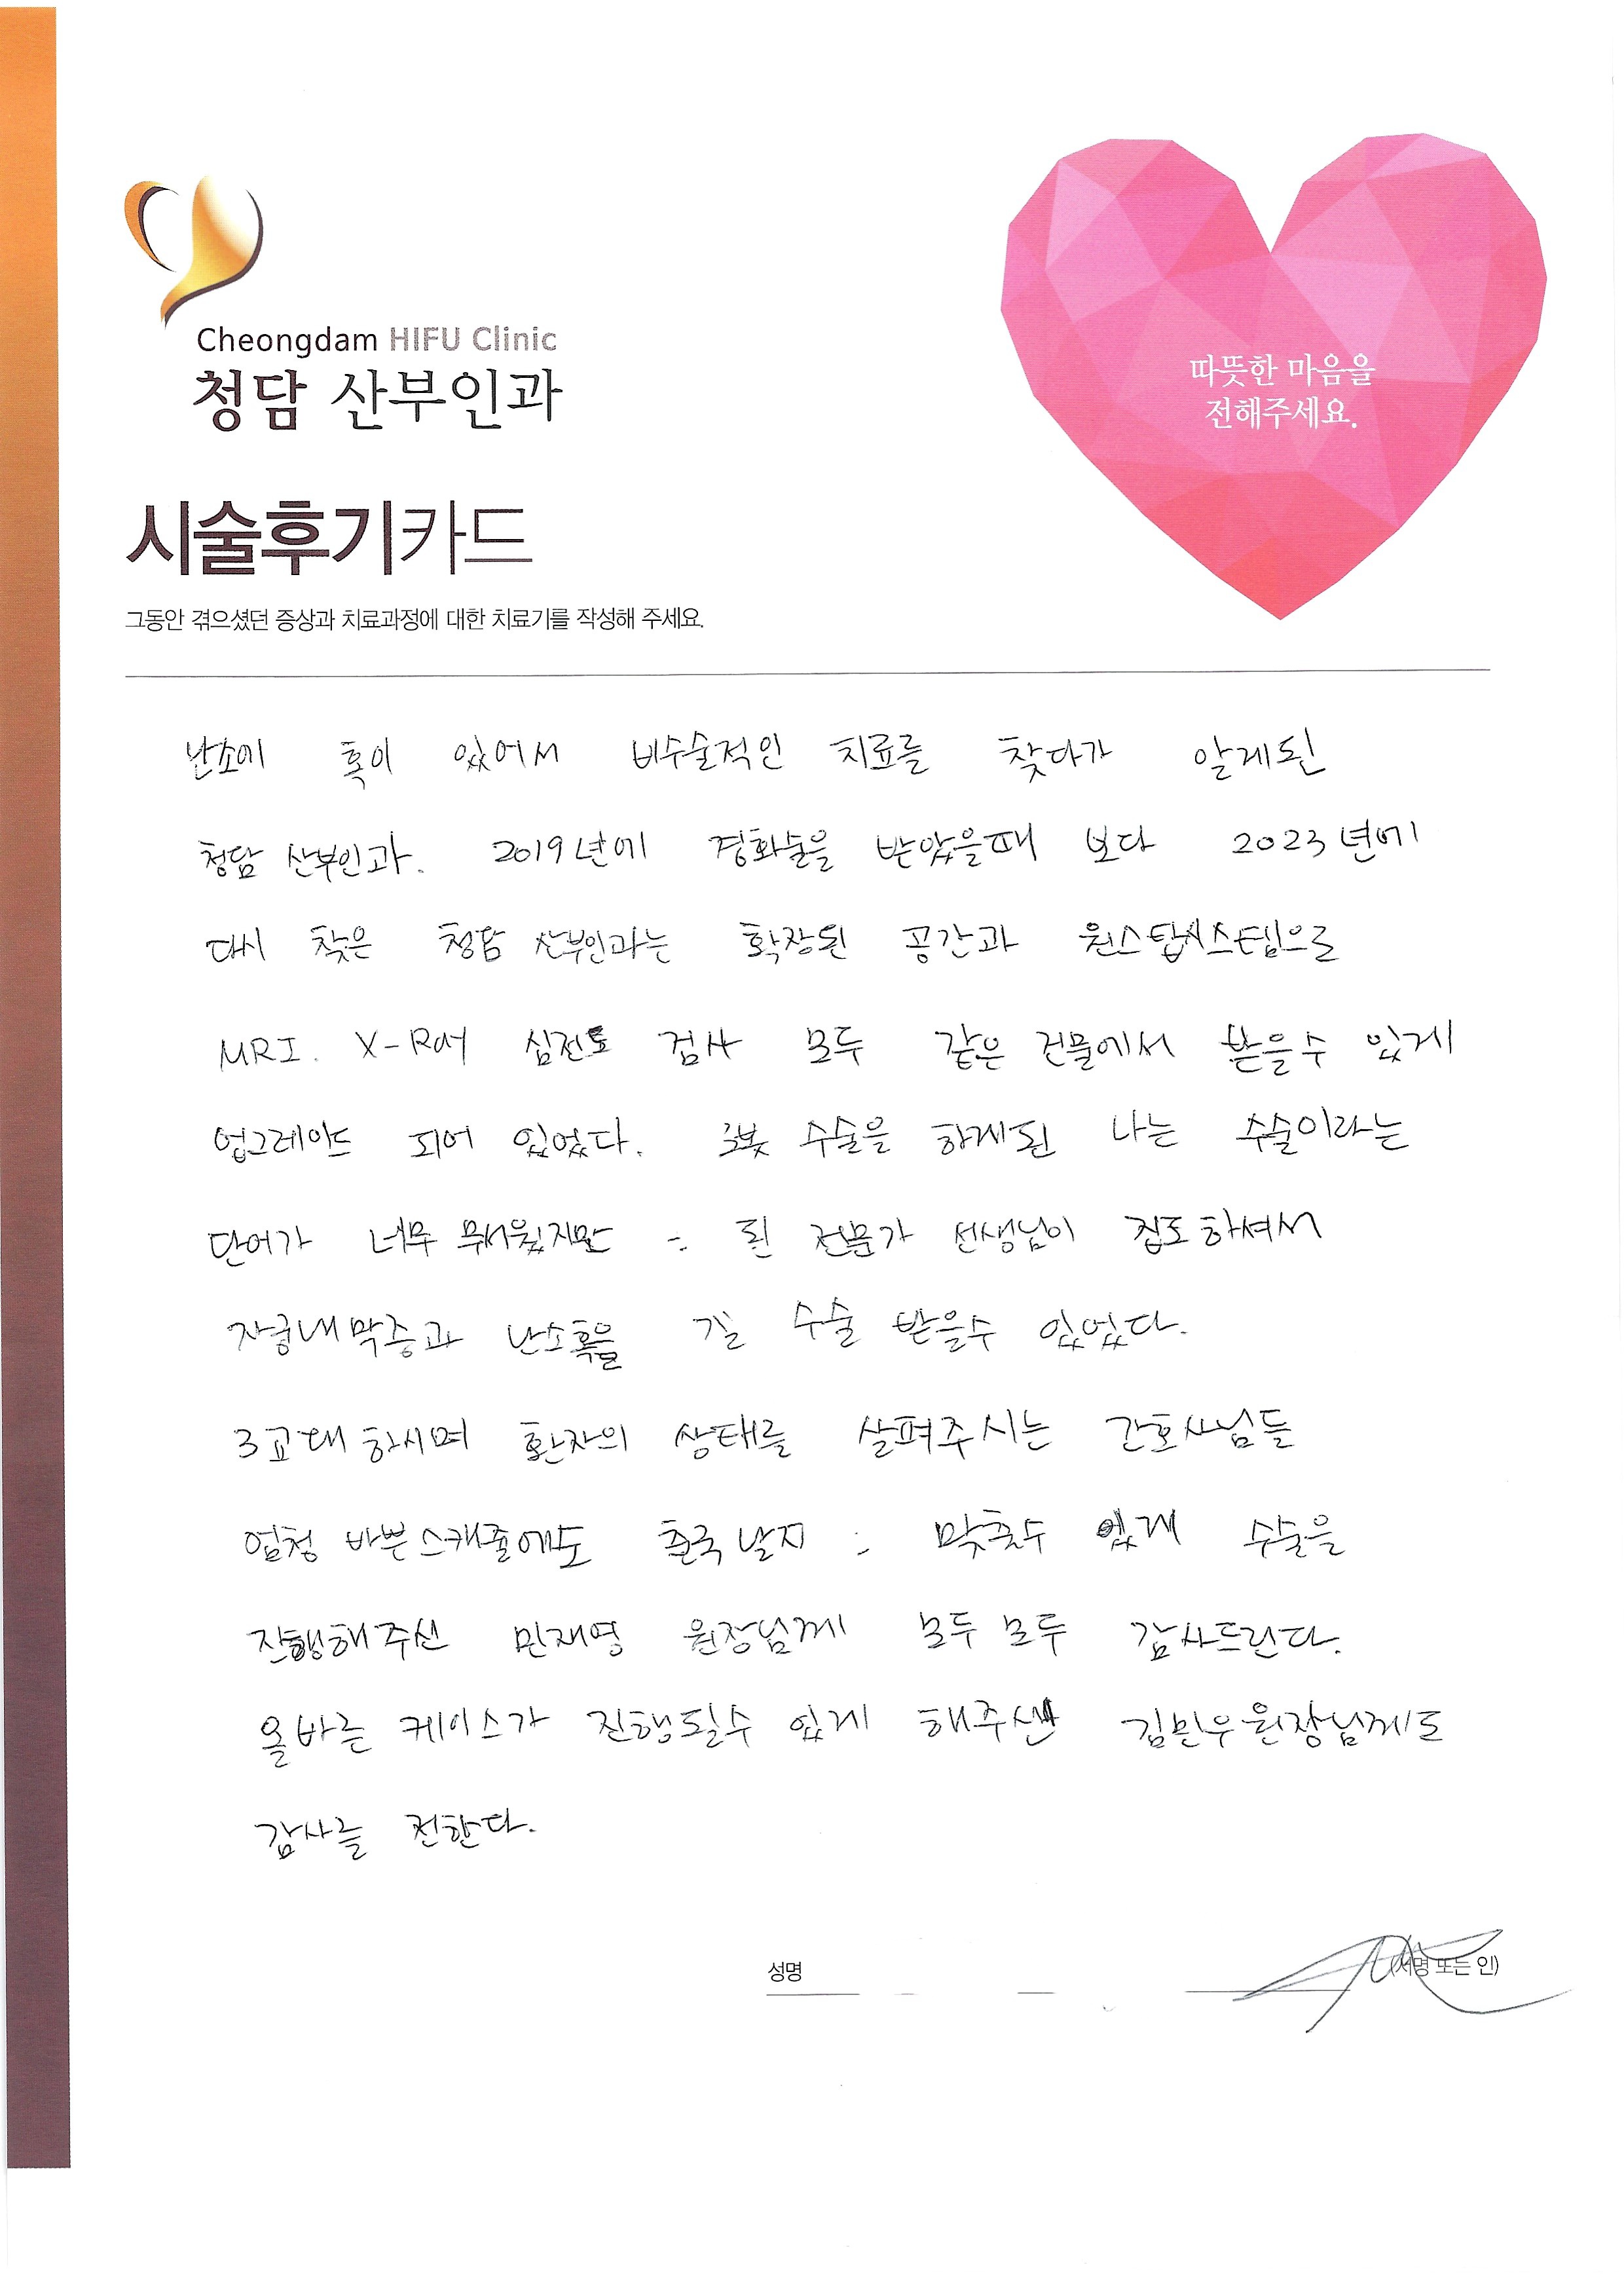 Cheongdam HIFU Clinic
청담 산부인과
따뜻한 마음을
전해주세요.
시술후기카드
그동안 겪으셨던 증상과 치료과정에 대한 치료기를 작성해 주세요.
난소에 혹이 있어서 비수술적인 치료를 찾다가 알게된
청담 산부인과. 2019년에 경화술을 받았을때 보다 2023년에
다시 찾은 청담 산부인과는 확장된 공간과 원스탑시스템으로
MRI. X-Ray 심전도 검사 모두 같은 건물에서 받을수 있게
업그레이드 되어 있었다. 로봇 수술을 하게된 나는 수술이라는
단어가 너무 무서웠지만 된 전문가 선생님이 집도하셔서
자궁내막증과 난소혹을 수술 받을수 있었다.
3교대 하시며 환자의 상태를 살펴주시는 간호사님들
엄청 바쁜스케줄에도 출국날자 맞출수 있게 수술을
진행해주신 민재영 원장님께 모두모두 감사드린다.
올바른 케이스가 진행될수 있게 해주신 김민우원장님께도
감사를 전한다.
성명 (서명 또는 인)